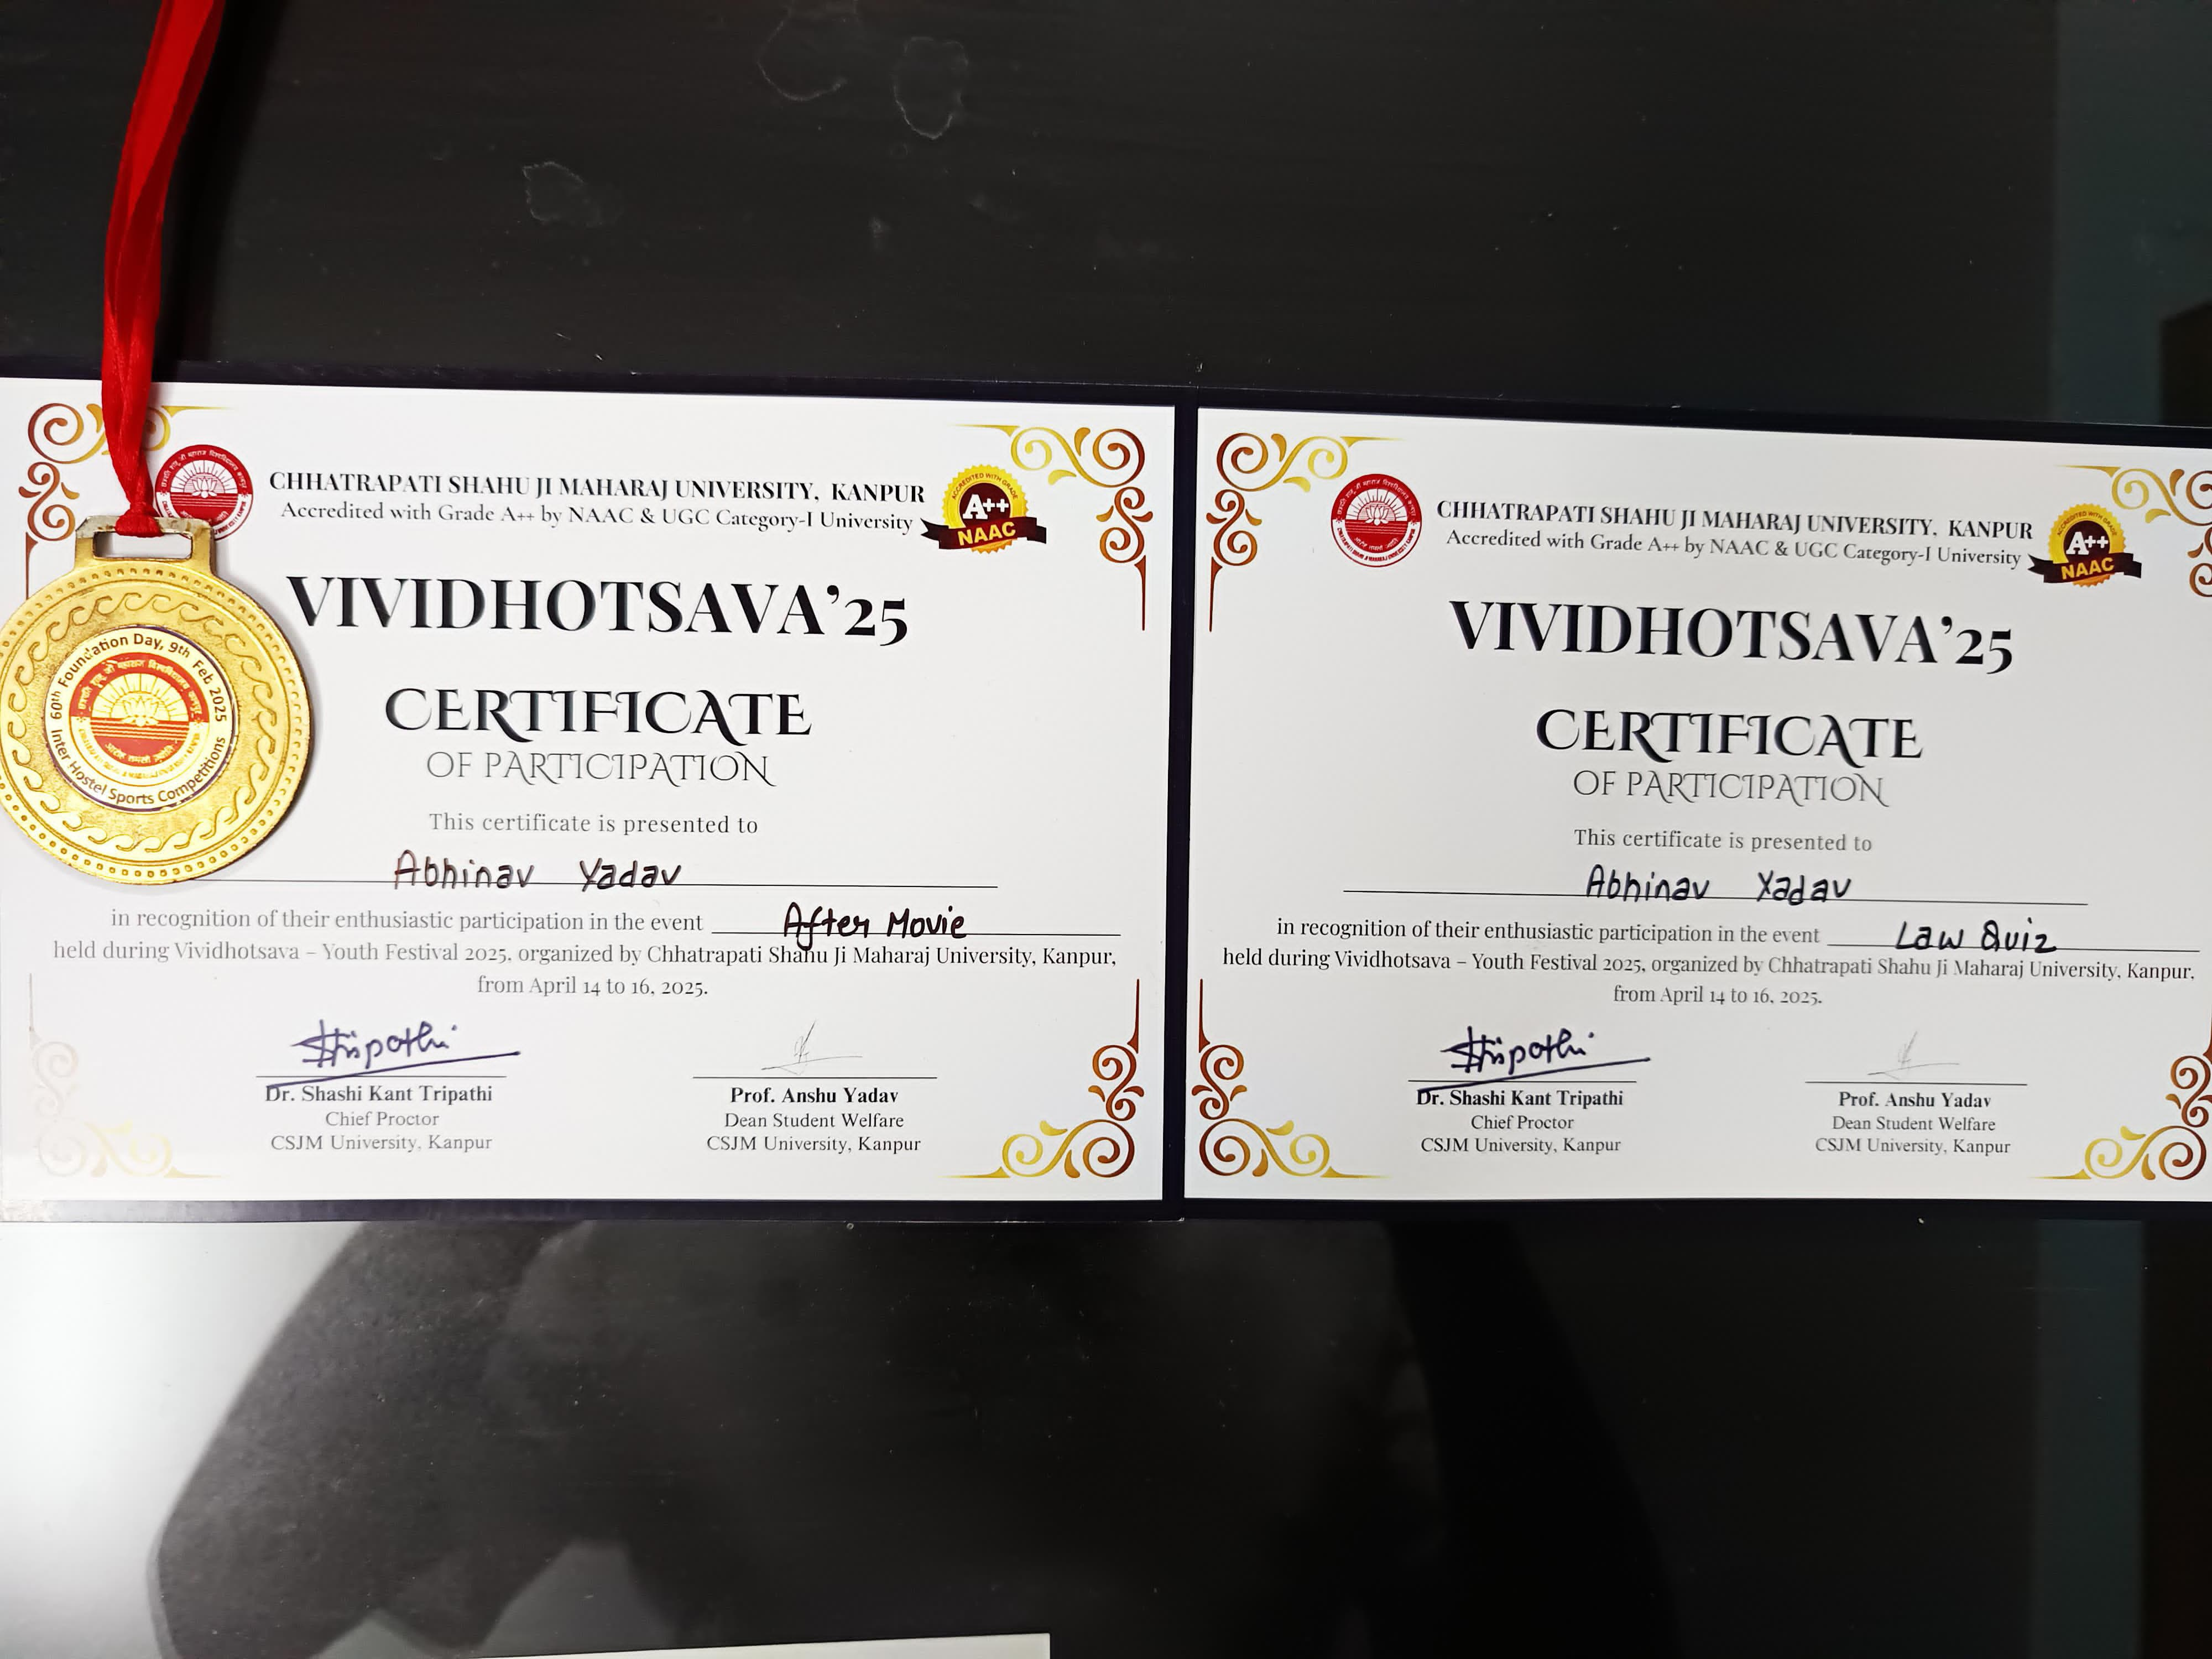 60th Foundation Day, 9th Feb 2025
Inter Hostel Sports Competitions
CHHATRAPATI SHAHU JI MAHARAJ UNIVERSITY, KANPUR
Accredited with Grade A++ by NAAC & UGC Category-I University
ACCREDITED WITH GRADE
A++
NAAC
VIVIDHOTSAVA'25
CERTIFICATE
OF PARTICIPATION
This certificate is presented to
Abhinav Yadav
in recognition of their enthusiastic participation in the event After Movie
held during Vividhotsava – Youth Festival 2025, organized by Chhatrapati Shahu Ji Maharaj University, Kanpur,
from April 14 to 16, 2025.
Stripathi
Dr. Shashi Kant Tripathi
Chief Proctor
CSJM University, Kanpur
Prof. Anshu Yadav
Dean Student Welfare
CSJM University, Kanpur
CHHATRAPATI SHAHU JI MAHARAJ UNIVERSITY, KANPUR
Accredited with Grade A++ by NAAC & UGC Category-I University
ACCREDITED WITH GRADE
A++
NAAC
VIVIDHOTSAVA'25
CERTIFICATE
OF PARTICIPATION
This certificate is presented to
Abhinav Yadav
in recognition of their enthusiastic participation in the event Law Quiz
held during Vividhotsava – Youth Festival 2025, organized by Chhatrapati Shahu Ji Maharaj University, Kanpur,
from April 14 to 16, 2025.
Stripathi
Dr. Shashi Kant Tripathi
Chief Proctor
CSJM University, Kanpur
Prof. Anshu Yadav
Dean Student Welfare
CSJM University, Kanpur